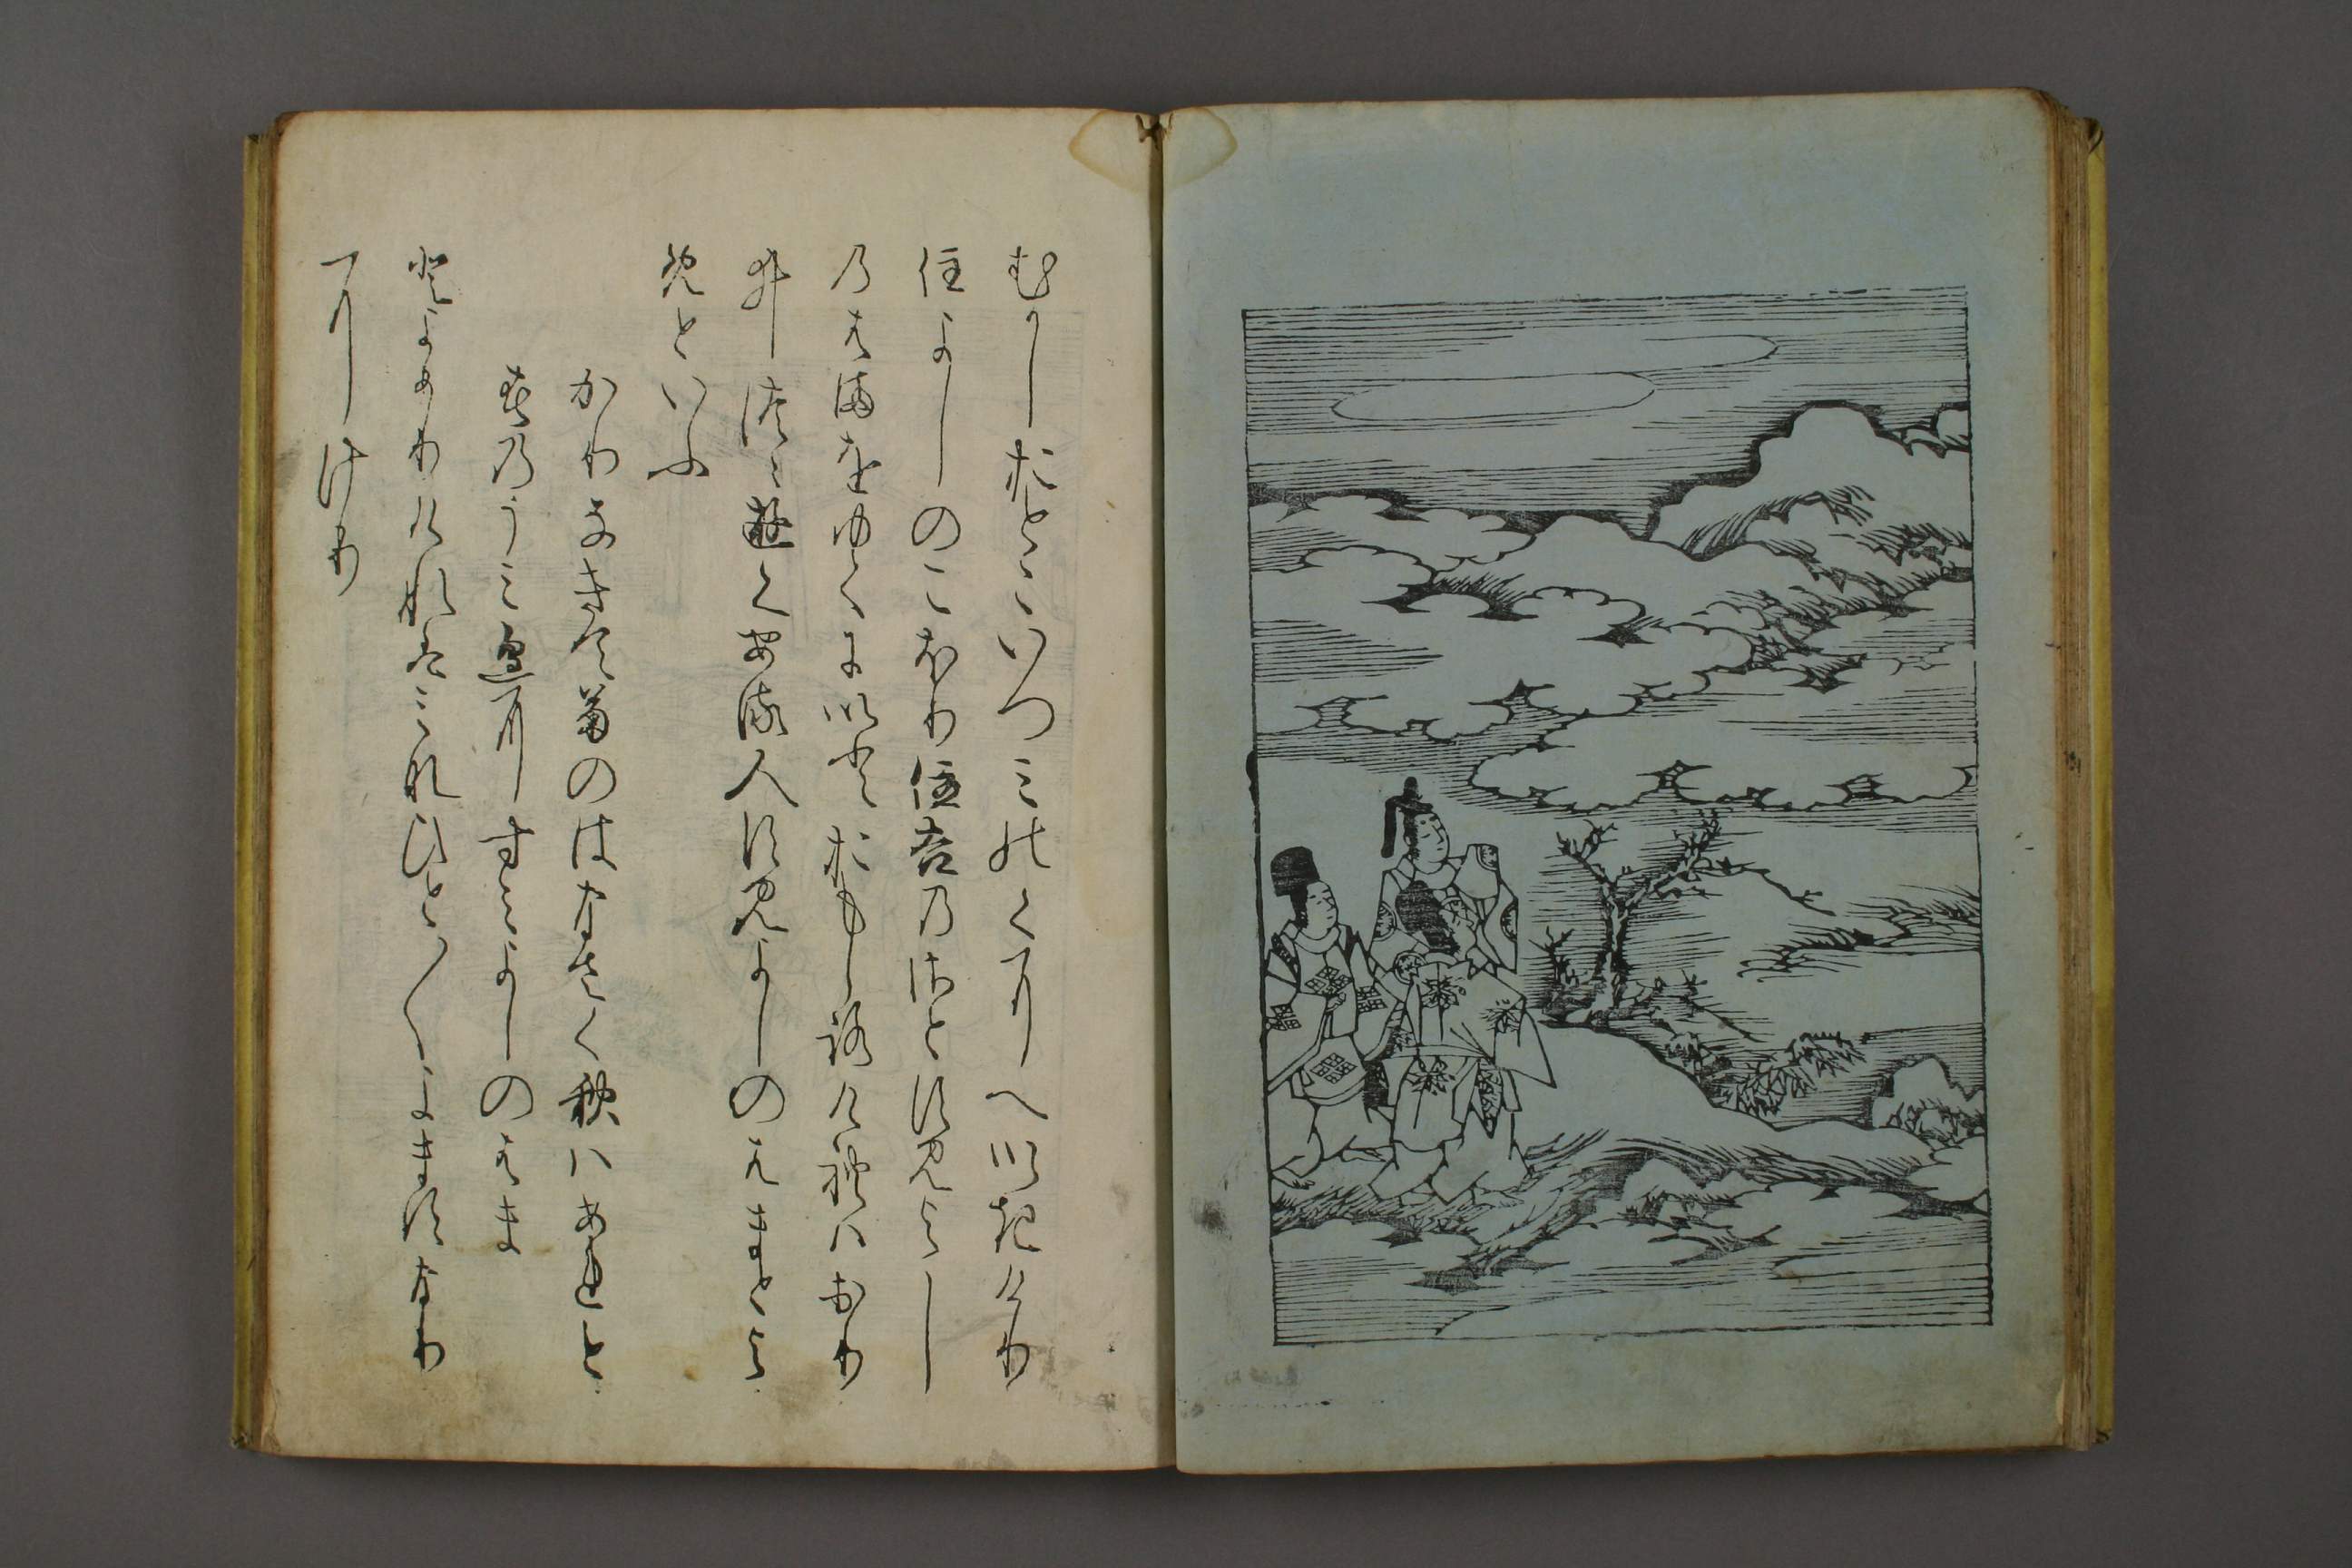 むかしおとこいつミのくにへいきけり
住よしのこほり住吉乃さとすみよし
乃はまをゆくにいとおもしろけれハおり
井つゝ遊くある人すみよしのはまとよ
めといふ
かりなきて菊のはなさく秋ハあれと
春乃うミ邊にすミよしのはま
とよめりけれはミなひと〱よますなり
にけり